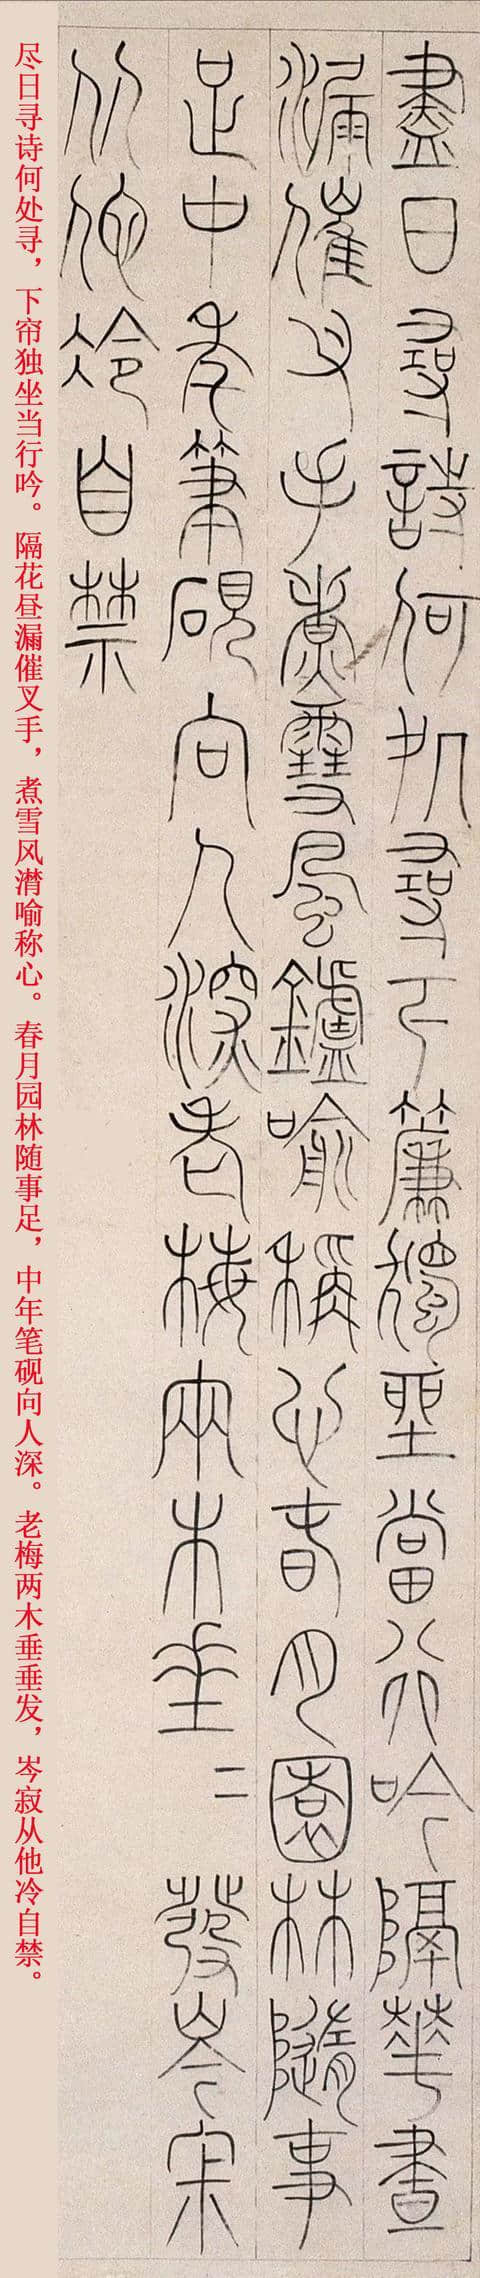 盡日尋詩何処尋下簾獨坐當行吟隔華晝
漏催叉手煮雪風鑪喻稱心春月園林隨事
足中年筆硯向人深老梅兩木垂二發岑寂
从他冷自禁
尽日寻诗何处寻，下帘独坐当行吟。隔花昼漏催叉手，煮雪风潸喻称心。春月园林随事足，中年笔砚向人深。老梅两木垂垂发，岑寂从他冷自禁。